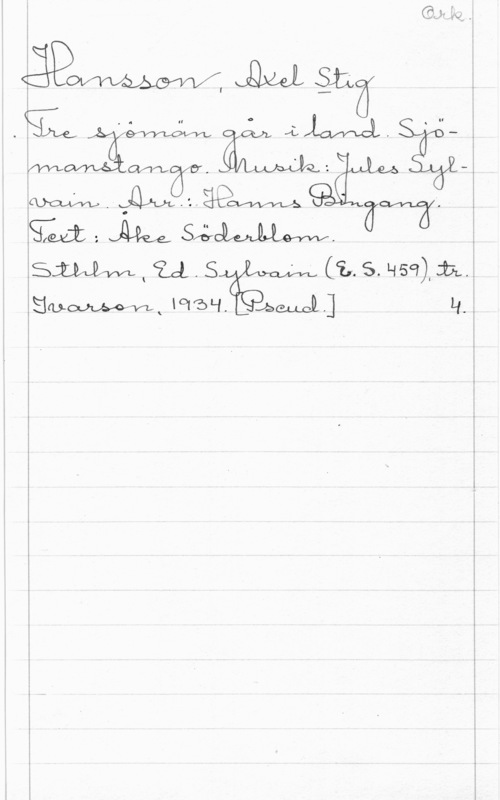 Ork.
Hansson, Axel Stig
Tre sjömän går i land. Sjö-
manstango. Musik: Jules Syl-
vain. Arr.: Hanns Bingang.
Text: Åke Söderblom.
Sthlm, Ed. Sylvain (E. S. 459), tr.
Ivarson, 1934. [Pseud.] 4.